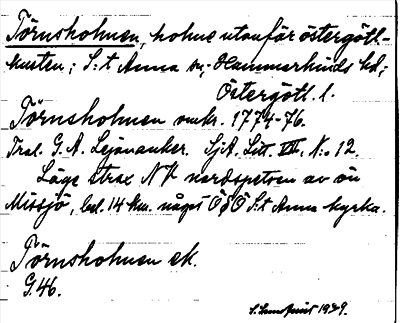 Törnsholmen, holme utanför östergötl.-
kusten; S:t Anna sn; Hammerkinds hd;
Östergötl. l.
Törnsholmen omkr. 1774-76.
Trol. G. A. Lejonanker. SjK. Litt. VIII, N:o 12.
Läge strax NV nordspetsen av ön
Missjö, bel. 14 km. något ÖSÖ S:t Anna kyrka.
Törnsholmen ek.
G.46.
S. Lundquist 1929.